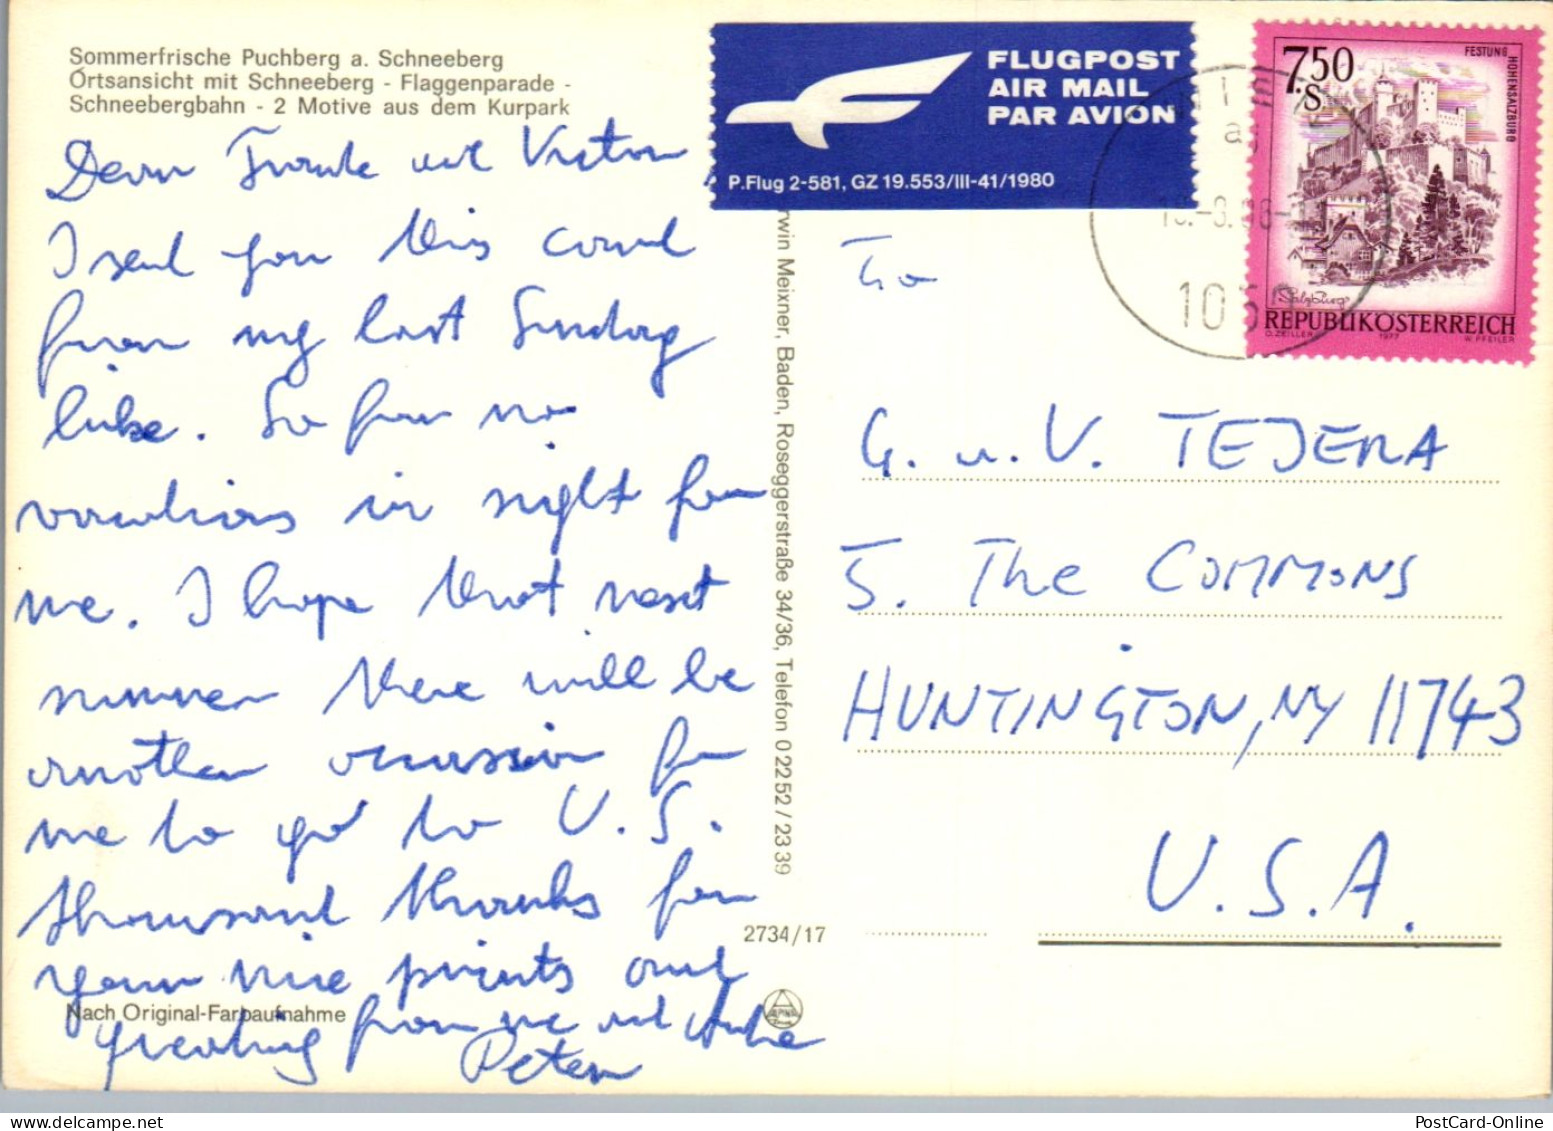 Sommerfrische Puchberg a. Schneeberg
Ortsansicht mit Schneeberg - Flaggenparade -
Schneebergbahn - 2 Motive aus dem Kurpark
Dear
I send you this card
from my last Sunday
hike. So far no
vacations in sight for
me. I hope that next
summer there will be
another occassion for
me to go to U.S.
thousand thanks for
your nice prints and
greeting from me and
Peter
Nach Original-Farbaufnahme
rwin Meixner, Baden, Roseggerstraße 34/36, Telefon 0 22 52 / 23 39
2734/17
FLUGPOST
AIR MAIL
PAR AVION
P.Flug 2-581, GZ 19.553/III-41/1980
7.50
S
FESTUNG
HOHENSALZBURG
Salzburg
REPUBLIK ÖSTERREICH
O. ZEILLER 1977 W. PFEILER
To
G. u. V. TEJERA
5. The COMMONS
HUNTINGTON, NY 11743
U.S.A.
PostCard-Online